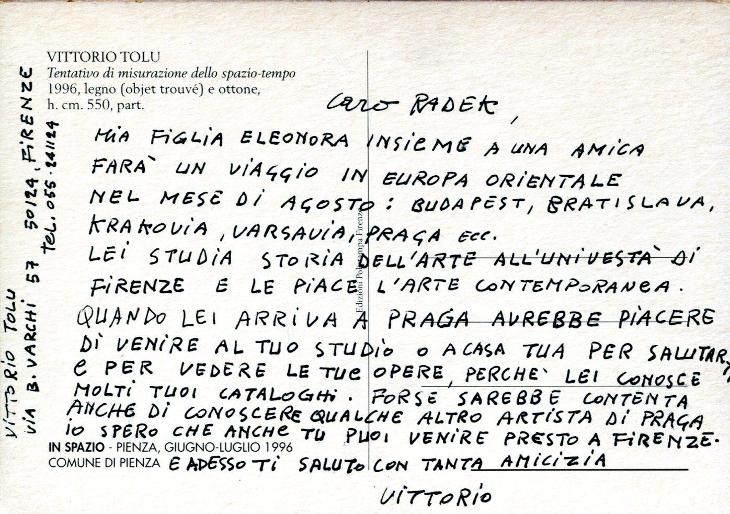 VITTORIO TOLU
Tentativo di misurazione dello spazio-tempo
1996, legno (objet trouvé) e ottone,
h. cm. 550, part.
Caro RADEK,
MIA FIGLIA ELEONORA INSIEME A UNA AMICA
FARÀ UN VIAGGIO IN EUROPA ORIENTALE
NEL MESE DI AGOSTO: BUDAPEST, BRATISLAVA,
KRAKOVIA, VARSAVIA, PRAGA ECC.
LEI STUDIA STORIA DELL'ARTE ALL'UNIVESTÀ DI
FIRENZE E LE PIACE L'ARTE CONTEMPORANEA.
QUANDO LEI ARRIVA A PRAGA AVREBBE PIACERE
DI VENIRE AL TUO STUDIO O A CASA TUA PER SALUTARTI
E PER VEDERE LE TUE OPERE, PERCHE' LEI CONOSCE
MOLTI TUOI CATALOGHI. FORSE SAREBBE CONTENTA
ANCHE DI CONOSCERE QUALCHE ALTRO ARTISTA DI PRAGA
IO SPERO CHE ANCHE TU PUOI VENIRE PRESTO A FIRENZE.
IN SPAZIO - PIENZA, GIUGNO-LUGLIO 1996
COMUNE DI PIENZA
E ADESSO TI SALUTO CON TANTA AMICIZIA
VITTORIO
VITTORIO TOLU
VIA B. VARCHI 57 50124, FIRENZE
TEL. 055-241124
Edizioni Polistampa Firenze